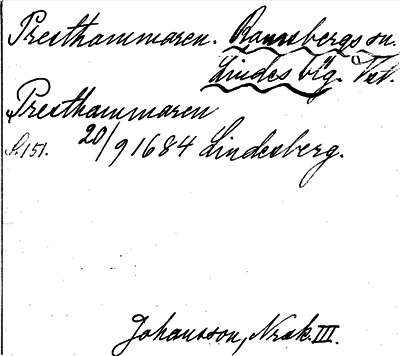 Presthammaren. Ramsbergs sn.
Lindes bg. Vstl.
Presthammaren
S. 151. 20/9 1684 Lindesberg.
Johansson, Norsk. III.